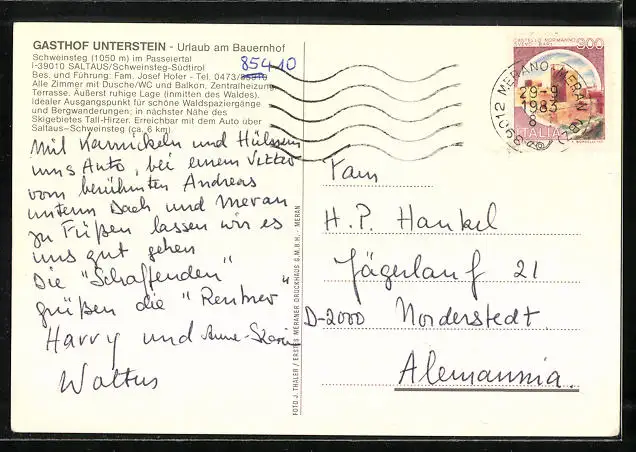 GASTHOF UNTERSTEIN - Urlaub am Bauernhof
Schweinsteg (1050 m) im Passeiertal
I-39010 SALTAUS/Schweinsteg-Südtirol
Bes. und Führung: Fam. Josef Hofer - Tel. 0473/
85410
Alle Zimmer mit Dusche/WC und Balkon, Zentralheizung,
Terrasse. Äußerst ruhige Lage (inmitten des Waldes).
Idealer Ausgangspunkt für schöne Waldspaziergänge
und Bergwanderungen; in nächster Nähe des
Skigebietes Tall-Hirzer. Erreichbar mit dem Auto über
Saltaus-Schweinsteg (ca. 6 km).
Mit Karnickeln und
ums Auto, bei einem Vetter
vom berühmten Andreas
unterm Dach und Meran
zu Füßen lassen wir es
uns gut gehen
Die "Schaffenden"
grüßen die "Rentner"
Harry und Anne-
FOTO J. THALER / ERSTES MERANER DRUCKHAUS G.M.B.H. - MERAN
CASTELLO NORMANNO
SVEVO BARI
300
ITALIA
39012 MERANO - MERAN
29-9
1983
8
Fam
H.P. Hankel
Jägerlauf 21
D-2000 Norderstedt
Alemannia.